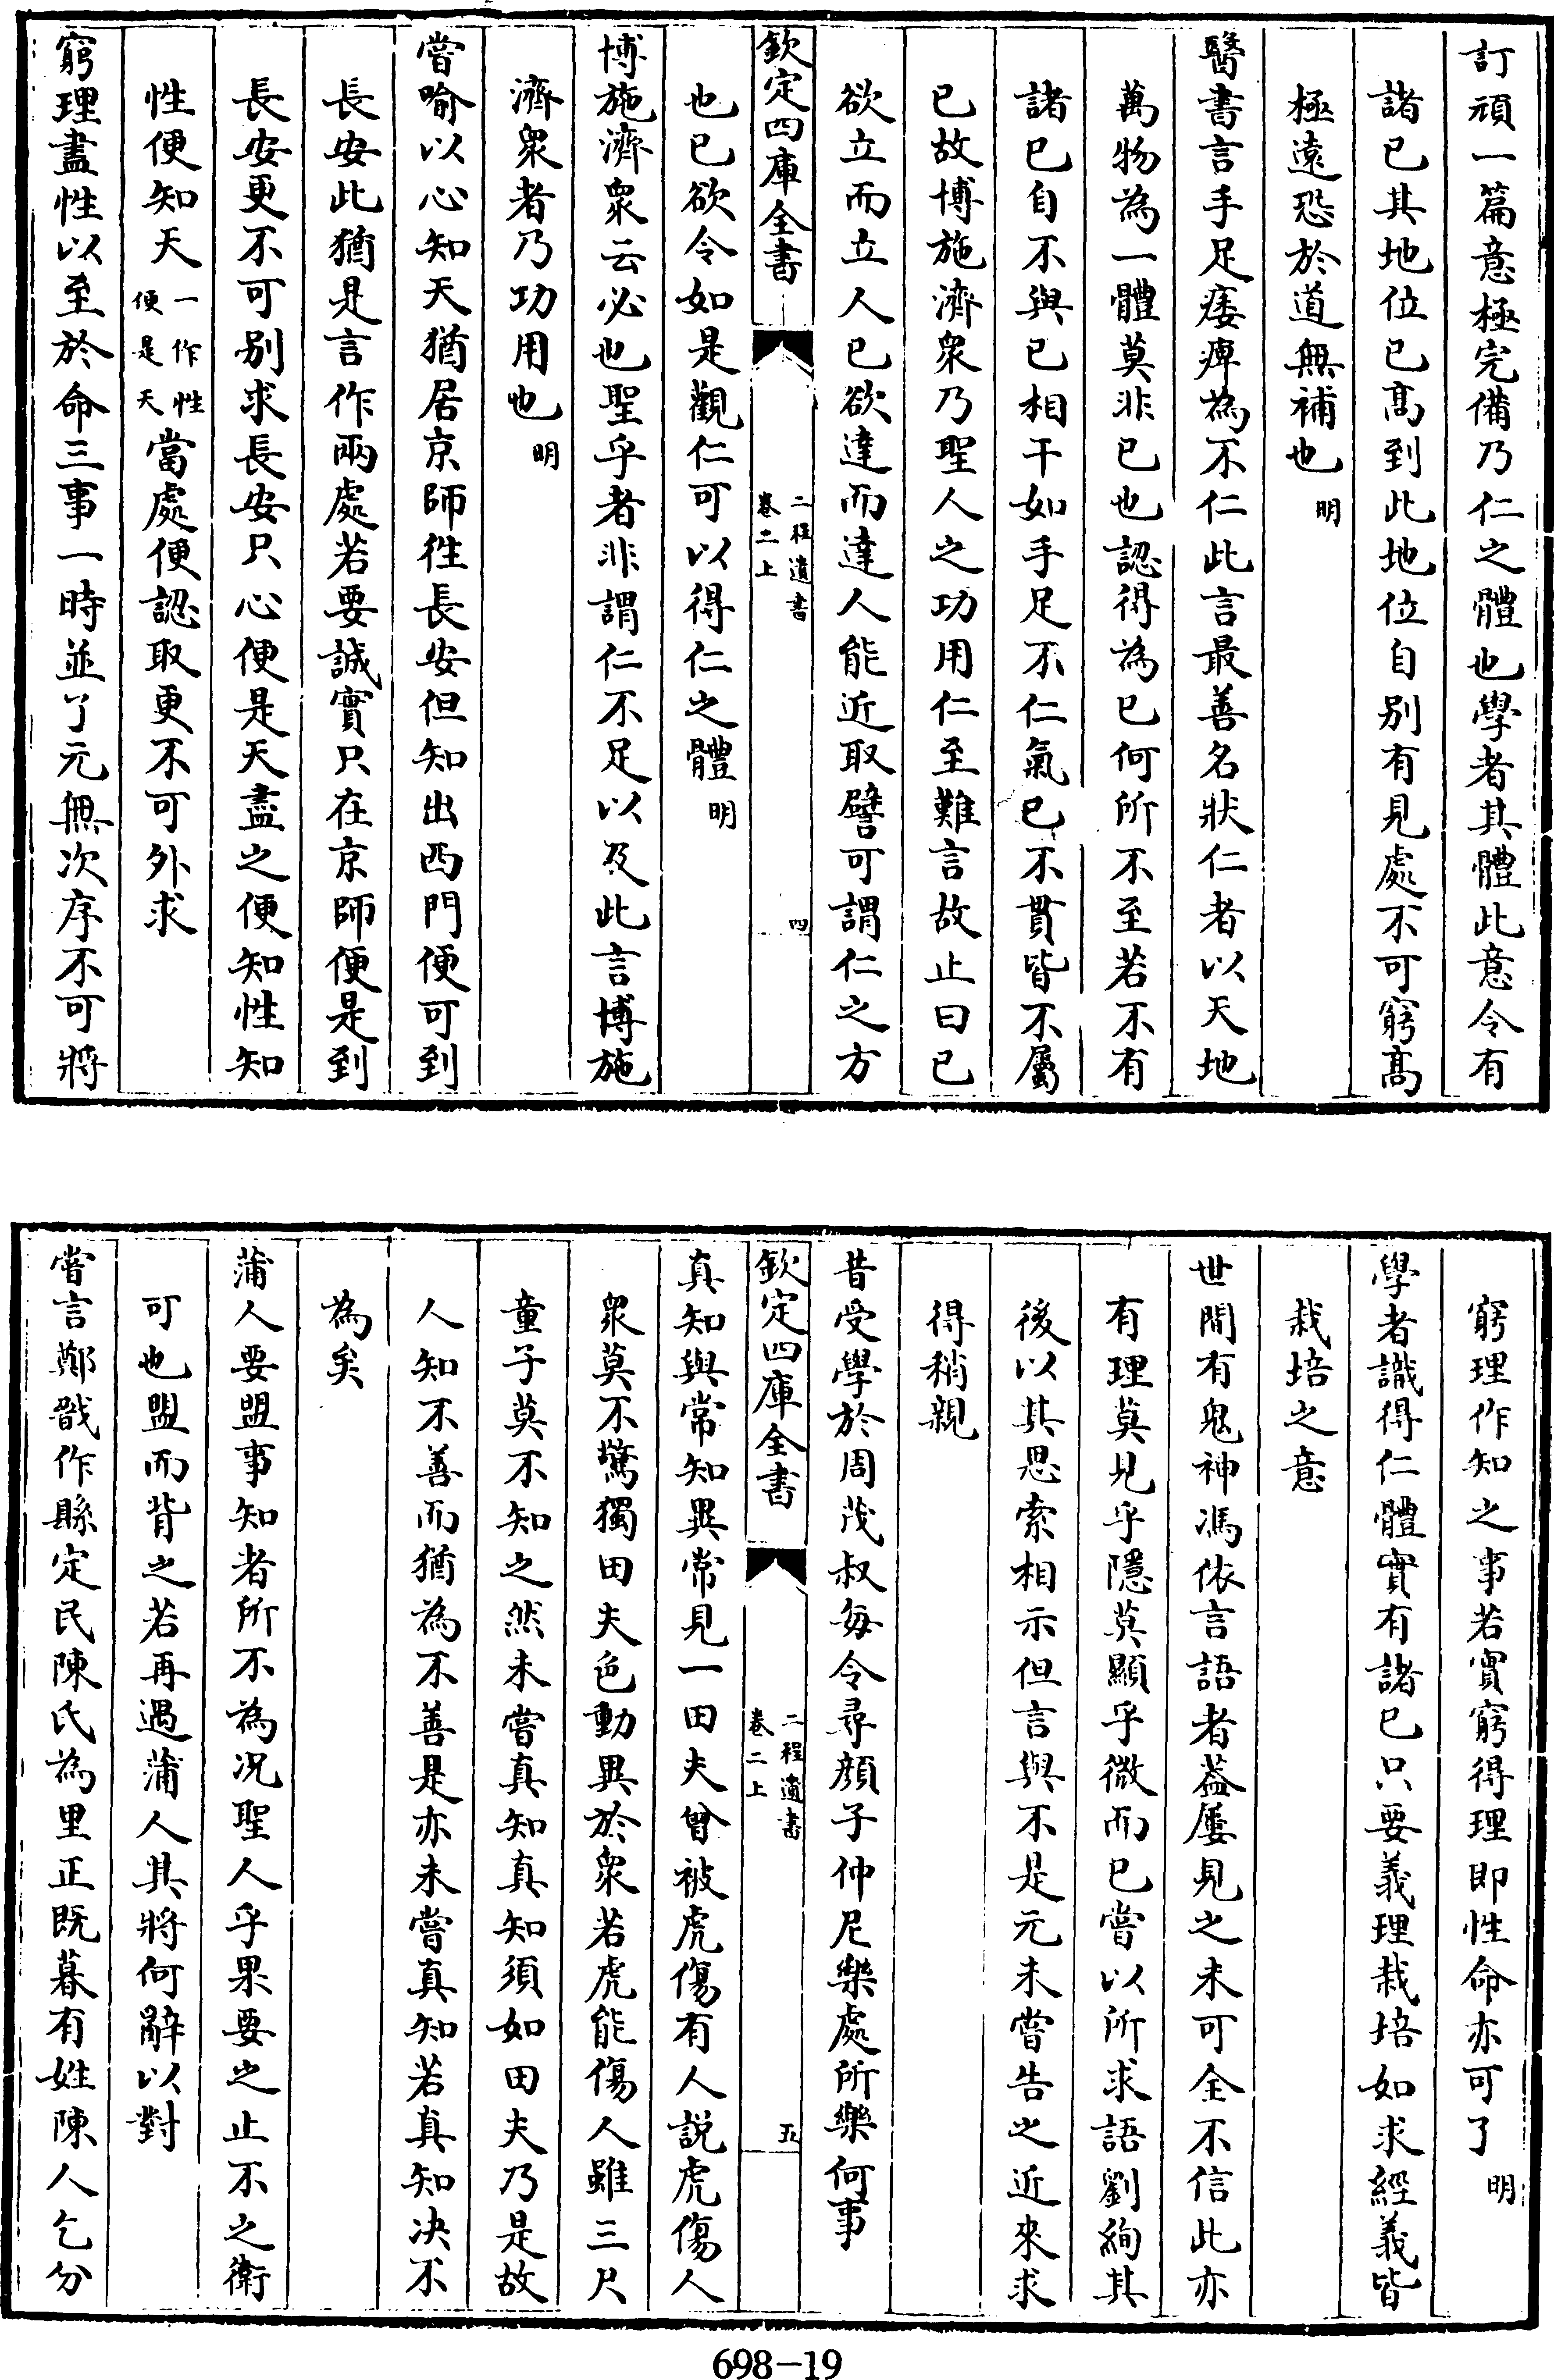 訂頑一篇意極完備乃仁之體也學者其體此意令有
諸已其地位已髙到此地位自别有見處不可窮髙
極遠恐於道無補也 明
醫書言手足痿痺為不仁此言最善名狀仁者以天地
萬物為一體莫非已也認得為已何所不至若不有
諸已自不與已相干如手足不仁氣已不貫皆不屬
已故博施濟衆乃聖人之功用仁至難言故止曰已
欲立而立人已欲達而達人能近取譬可謂仁之方
欽定四庫全書
二程遺書
卷二上
四
也已欲令如是觀仁可以得仁之體 明
博施濟衆云必也聖乎者非謂仁不足以及此言博施
濟衆者乃功用也 明
嘗喻以心知天猶居京師徃長安但知出西門便可到
長安此猶是言作兩處若要誠實只在京師便是到
長安更不可别求長安只心便是天盡之便知性知
性便知天 一作性便是天 當處便認取更不可外求
窮理盡性以至於命三事一時並了元無次序不可將
窮理作知之事若實窮得理即性命亦可了 明
學者識得仁體實有諸已只要義理栽培如求經義皆
栽培之意
世間有鬼神馮依言語者葢屢見之未可全不信此亦
有理莫見乎隱莫顯乎微而已嘗以所求語劉絢其
後以其思索相示但言與不是元未嘗告之近來求
得稍親
昔受學於周茂叔每令尋顔子仲尼樂處所樂何事
欽定四庫全書
二程遺書
卷二上
五
真知與常知異常見一田夫曾被虎傷有人説虎傷人
衆莫不驚獨田夫色動異於衆若虎能傷人雖三尺
童子莫不知之然未嘗真知真知須如田夫乃是故
人知不善而猶為不善是亦未嘗真知若真知决不
為矣
蒲人要盟事知者所不為况聖人乎果要之止不之衛
可也盟而背之若再遇蒲人其將何辭以對
嘗言鄭戩作縣定民陳氏為里正既暮有姓陳人乞分
698-19